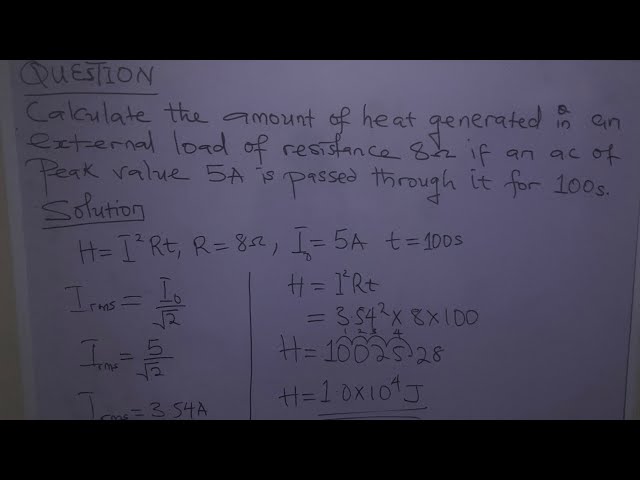 QUESTION
Calculate the amount of heat generated in an
external load of resistance 8Ω if an ac of
Peak value 5A is passed through it for 100s.
Solution
H = I²Rt, R = 8Ω, I₀ = 5A t = 100s
Irms = I₀/√2
Irms = 5/√2
Irms = 3.54A
H = I²Rt
= 3.54² × 8 × 100
1 2 3 4
H = 10025.28
H = 1.0×10⁴ J